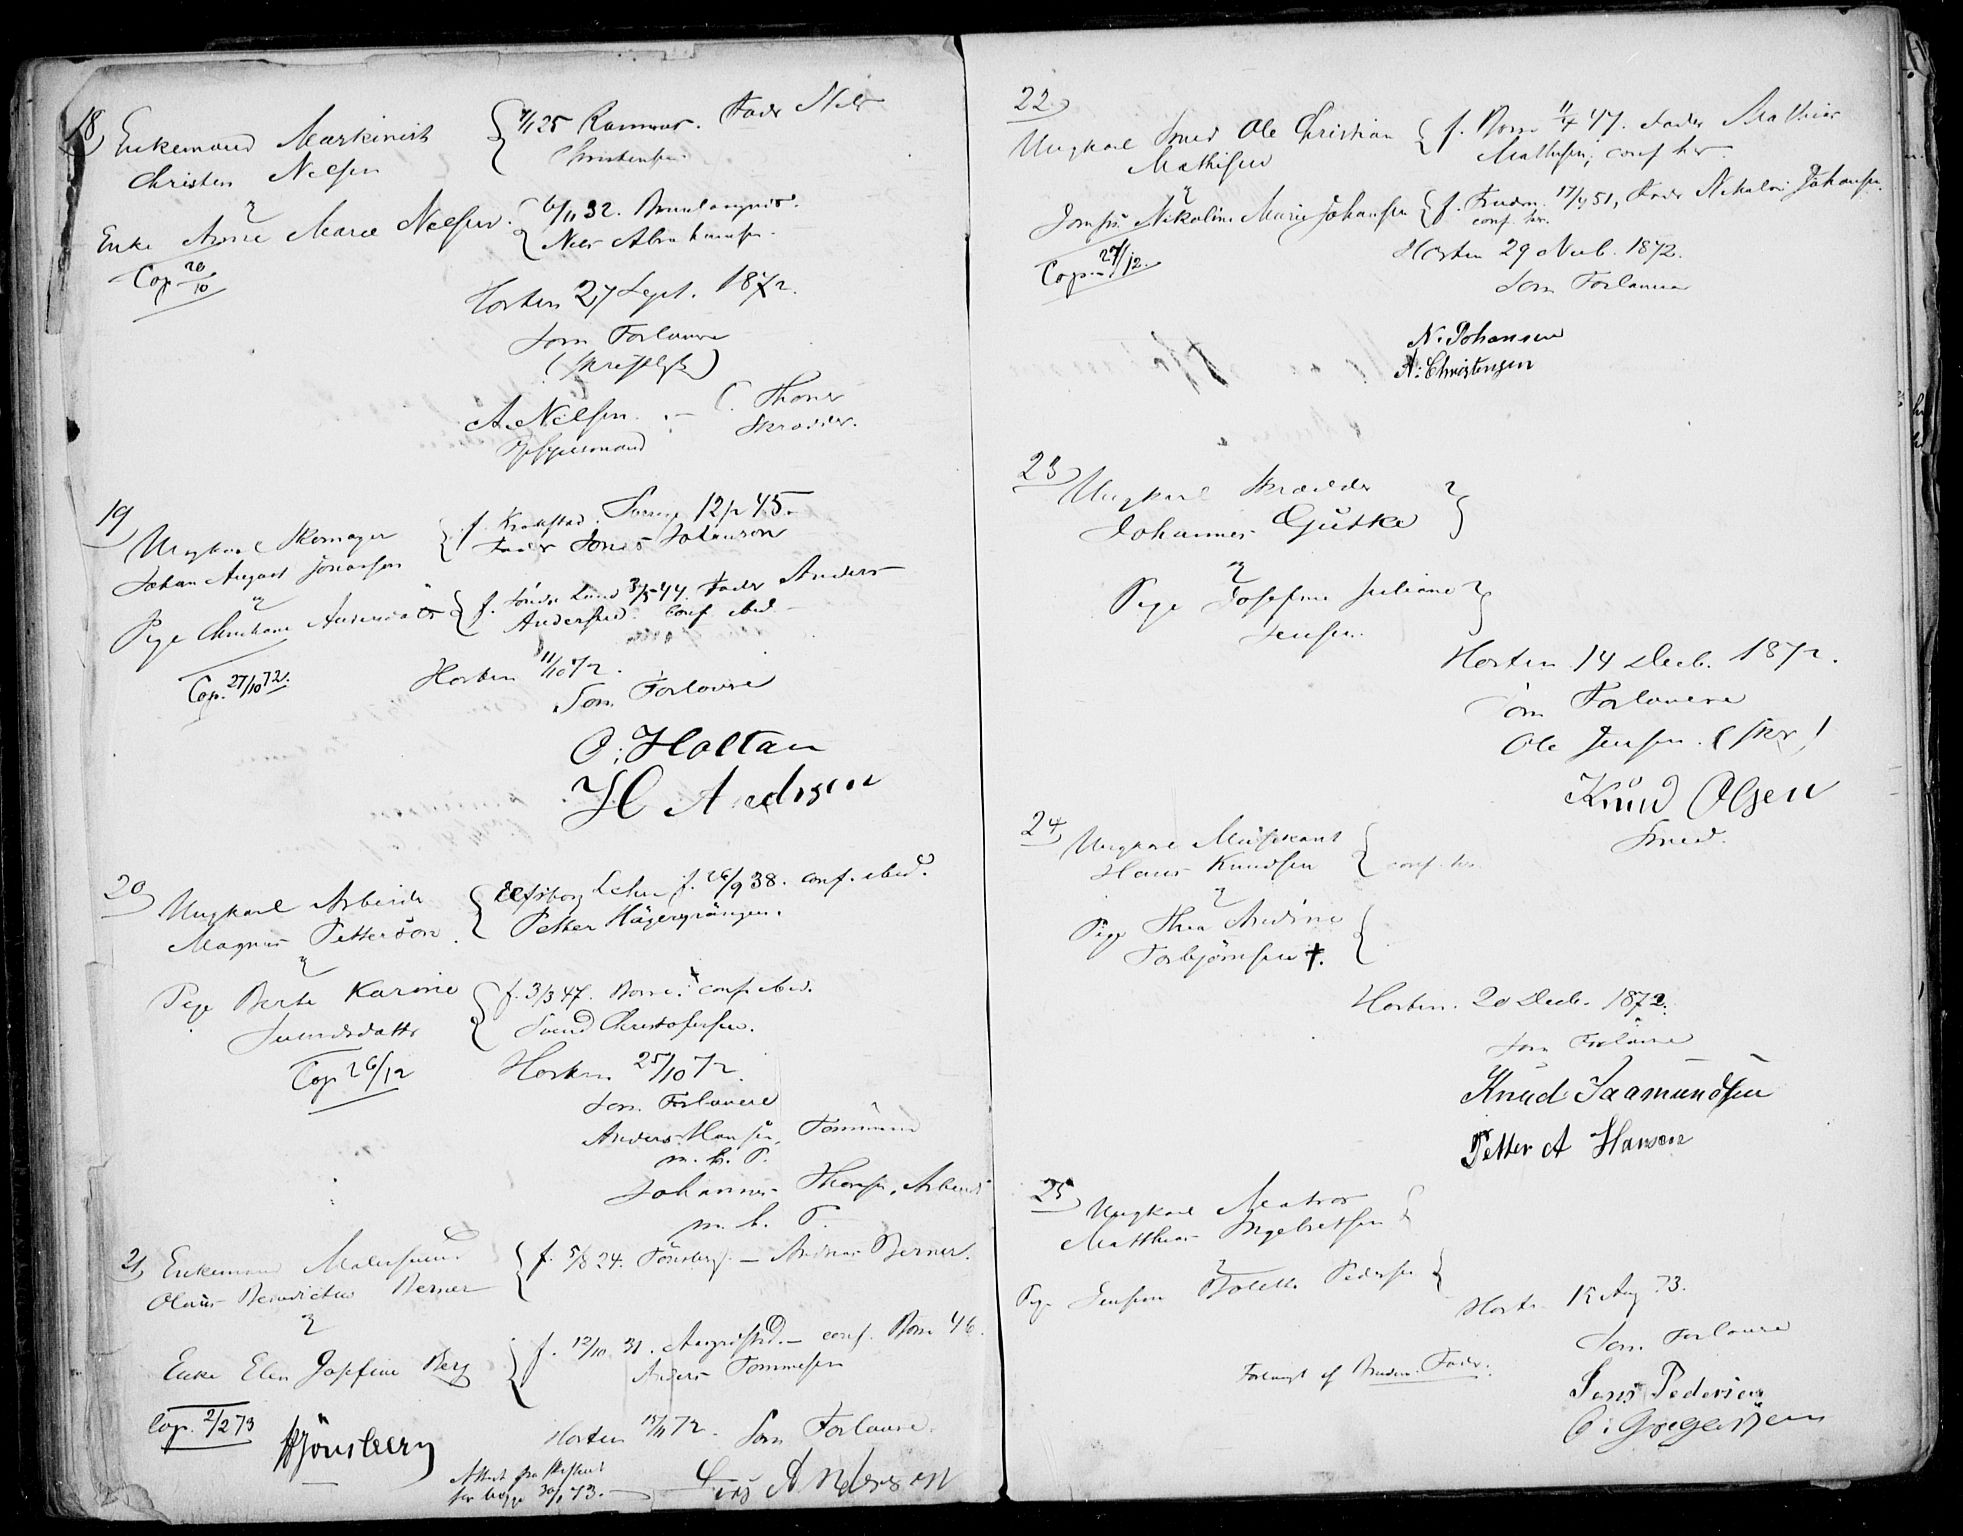 18
Enkemand Maskinist
Christen Nelsen
&
Enke Anne Marie Nelsen
Cop 20/10
7/1 25 Ramnes. Fader Niels
Christensen
6/11 32. Brunlangnes.
Niels Abrahamsen.
Horten 27 Sept. 1872.
Som Forlovere
(skriftlig)
A. Nelsen. C. Thoner
Skrædder.
19
Ungkarl Skomager
Johan August Jonassen
&
Pige Christiane Andersdatter
Cop. 27/10 72.
f. Krokstad. Sverige 12/2 45.
Fader Jonas Johanson
f. 3/5 44. Fader Anders
Andersen. conf ibid
Horten 11/10 72.
Som Forlovere
O. Holtan
H C Andersen
20
Ungkarl Arbeider
Magnus Petterson
&
Pige Berte Karine
Svendsdatter
Cop 26/12
Elfsborg Lehn f. 26/9 38. conf. ibid.
Petter
f. 3/3 47. Borre. conf. ibid.
Svend Christofersen.
Horten 25/10 72.
Som Forlovere
Anders Hansen, Tømmermand
m. h. P.
Johannes Thorsen, Arbeider
m. h. P.
21
Enkemand Malersvend
Olaus Benedictus Berner
&
Enke Elen Josefine Berg
Cop. 2/2 73
f. 5/8 24. Tönsberg. — Andreas Berner.
f. 12/10 31. — conf. Borre 46.
Anders Tommesen
Horten 15/11 72. Som Forlovere
Attest fra Skifteret
for begge 30/1 73.
Lars Anderson
22
Ungkarl Smed Ole Christian
Mathisen
&
Jomfru Nikoline Marie Johansen
Cop. 27/12.
f. Borre 11/4 47. Fader Mathias
Mathisen, conf her.
f. 17/9 51, Fader Nikolai Johansen.
conf. her.
Horten 29 Novb. 1872.
Som Forlovere
N. Johansen
A. Christensen
23
Ungkarl Skrædder
Johannes Gutke
&
Pige Josefine Juliane
Jensen.
Horten 14 Decb. 1872.
Som Forlovere
Ole Jensen. (skr.)
Knud Olsen
Smed.
24
Ungkarl Musikant
Hans Knudsen
conf. her
&
Pige Thea Andine
Torbjørnsen †.
Horten. 20 Decb. 1872.
Som Forlovere
Knud Saamundsen
Petter A Hansen
25
Ungkarl Matros
Matthias Ingebretsen
&
Pige Bolette Pedersen
Horten 15 Aug 73.
Som Forlovere
Forlangt af Brudens Fader.
Lars Pedersen
C. Gregersen